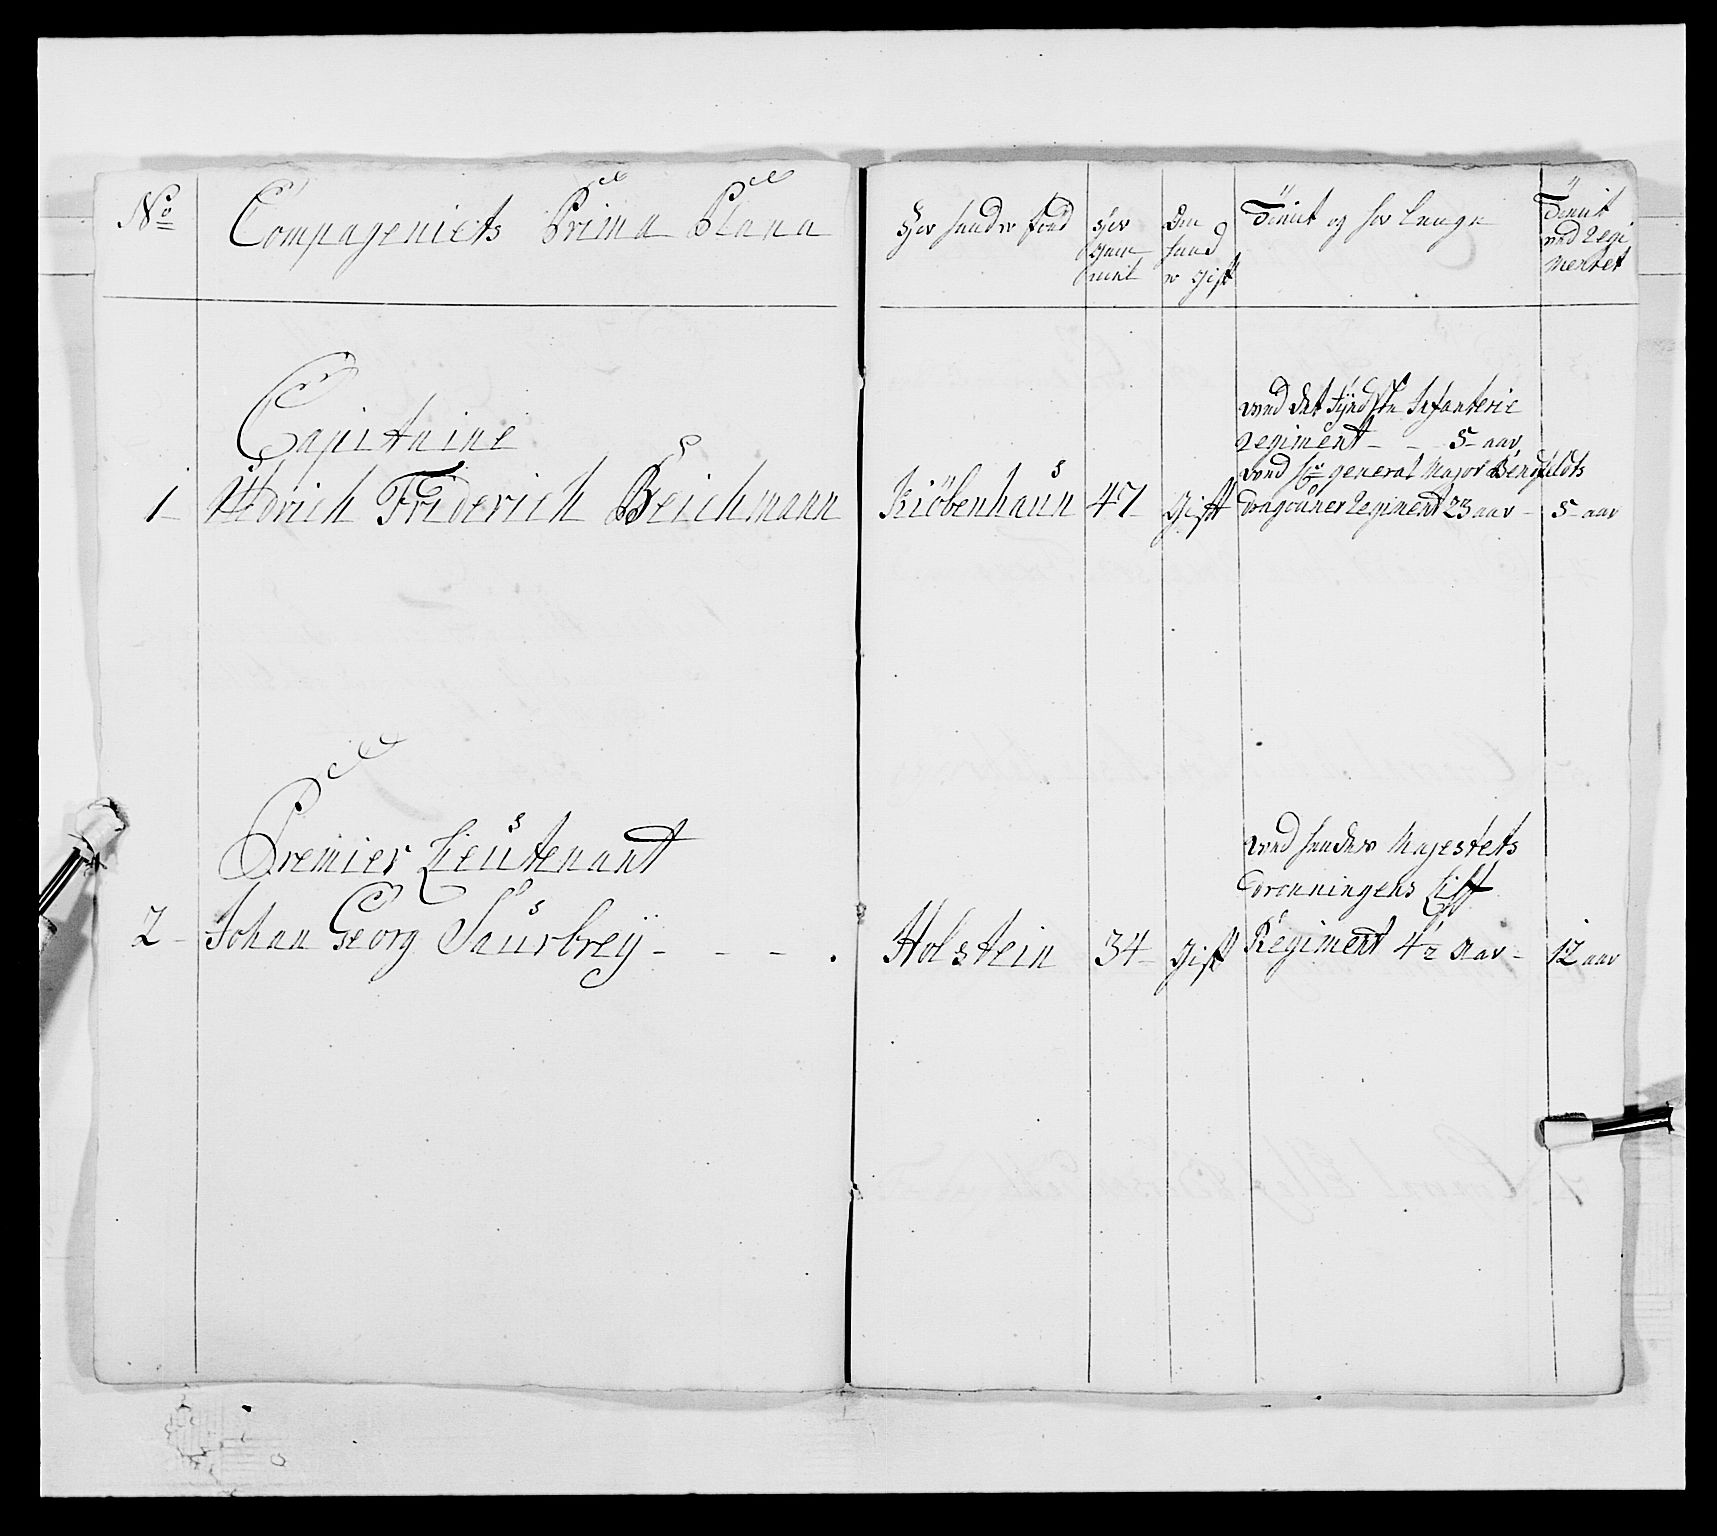 No
Compageniets Prima Plana
Hvor hand er fød
Hvor gam mel
Om hand er gift
Tient og hvor længe
Tient ved Regi mentet
Capitaine
1 Uldrich Friderich Beichmann
Kiöbenhaun
47
gift
ved det Fyndske Infanterie
Regiment - - 5 aar
ved Hr general Major Bendfeldts
Dragouner Regiment 23 aar -
5 aar
Premier Lieutenant
2 - Johan Georg Saurbrey - - -
Holstein
34 -
gift
ved hendes Majestets
Dronningens Liff
Regiment 4½ Aar -
12 aar